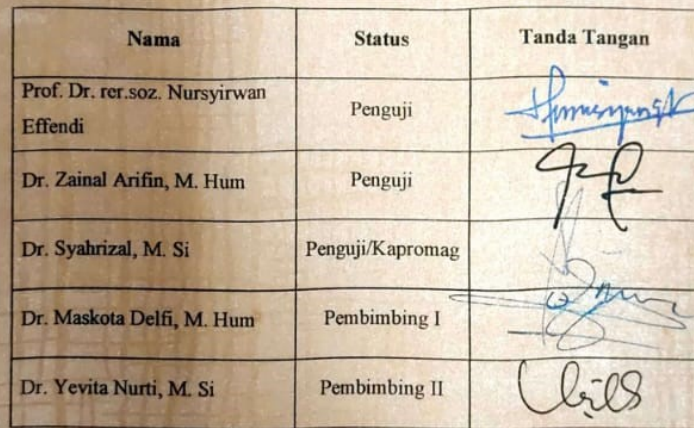 Nama Status Tanda Tangan
Prof. Dr. rer.soz. Nursyirwan
Effendi
Penguji
Dr. Zainal Arifin, M. Hum Penguji
Dr. Syahrizal, M. Si Penguji/Kapromag
Dr. Maskota Delfi, M. Hum Pembimbing I
Dr. Yevita Nurti, M. Si Pembimbing II